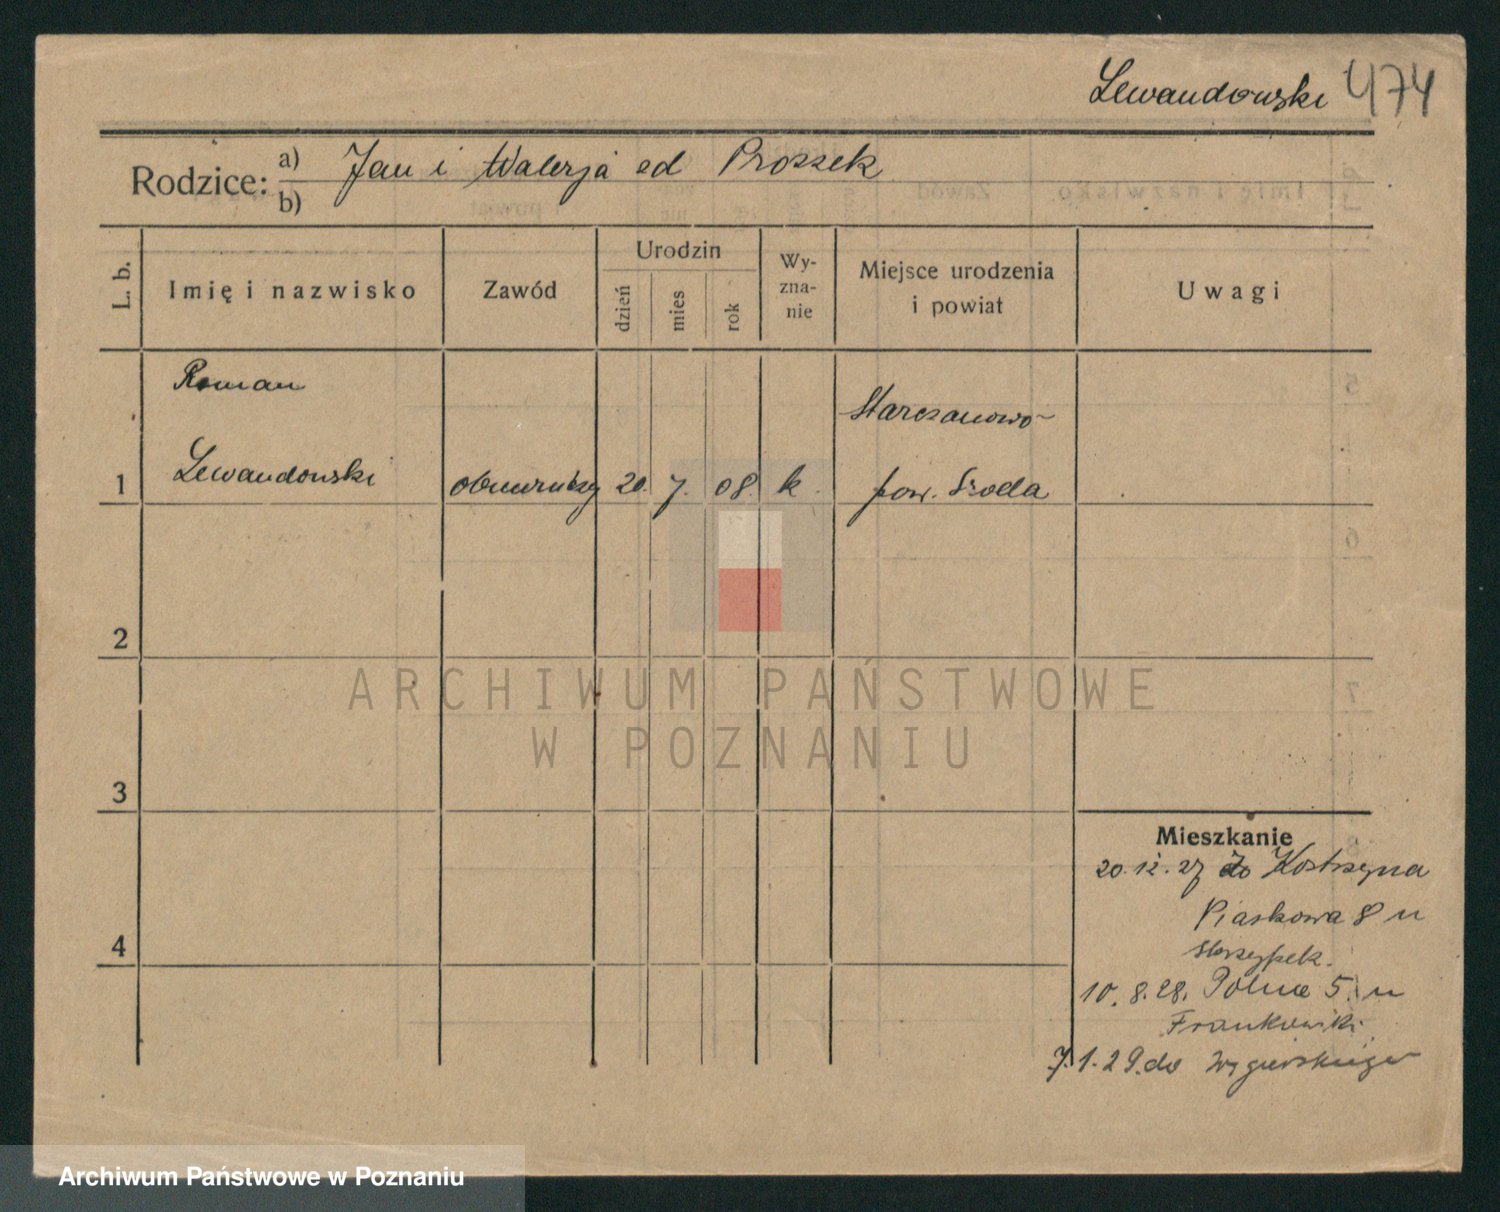 Lewandowski 474
Rodzice: a) Jan i Walerja od Prossek
b)
L. b.
Imię i nazwisko
Zawód
Urodzin
dzień
mies
rok
Wy-
zna-
nie
Miejsce urodzenia
i powiat
Uwagi
Roman
Starczanowo
1 Lewandowski 20. 7. 08. k. pow. Środa
2
3
4
Mieszkanie
20.12.27 do Kostrzyna
Piaskowa 8 u
Skrzypek.
10.8.28. Polna 5. u
7.1.29. do
ARCHIWUM PAŃSTWOWE
W POZNANIU
Archiwum Państwowe w Poznaniu